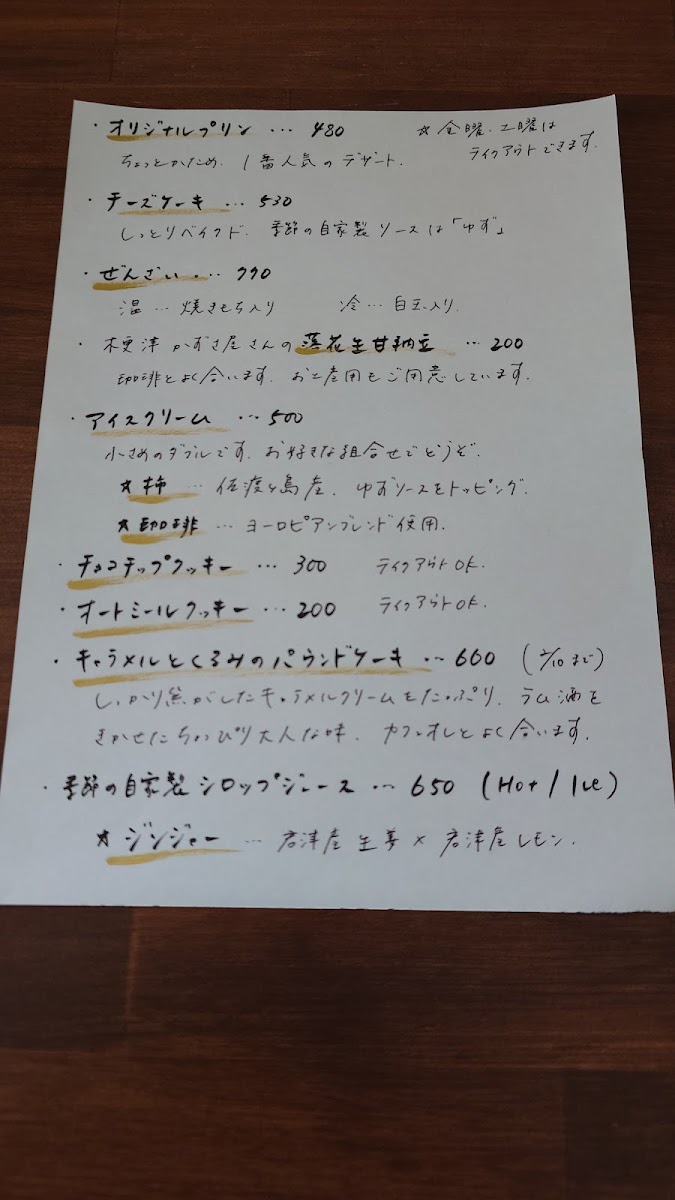 ・オリジナルプリン … 480 ☆金曜、土曜は
テイクアウトできます。
ちょっとかため、1番人気のデザート。
・チーズケーキ … 530
しっとりベイクド。季節の自家製ソースは「ゆず」
・ぜんざい … 770
温 … 焼きもち入り 冷 … 白玉入り。
・木更津 かずさ屋さんの落花生甘納豆 … 200
珈琲とよく合います。お土産用もご用意しています。
・アイスクリーム … 500
小さめのダブルです。お好きな組合せでどうぞ。
★柿 … 佐渡ヶ島産、ゆずソースをトッピング。
★珈琲 … ヨーロピアンブレンド使用。
・チョコチップクッキー … 300 テイクアウトOK.
・オートミールクッキー … 200 テイクアウトOK.
・キャラメルとくるみのパウンドケーキ … 660 (2/10まで)
しっかり焦がしたキャラメルクリームをたっぷり。ラム酒を
きかせたちょっぴり大人な味。カフェオレとよく合います。
・季節の自家製シロップジュース … 650 (Hot / Ice)
★ジンジャー … 君津産生姜×君津産レモン.